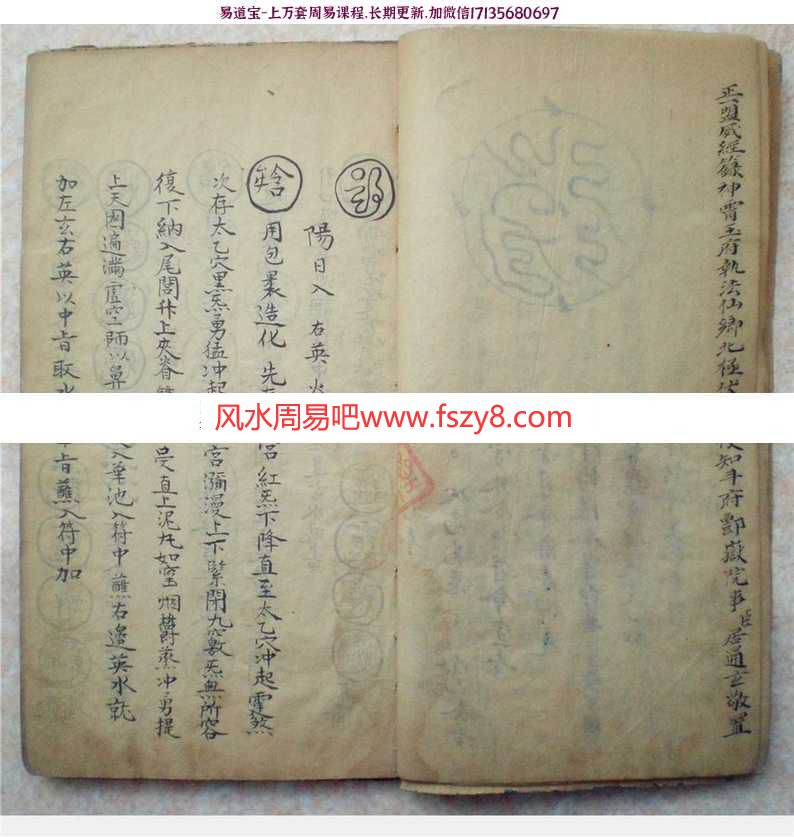 易道宝-上万套周易课程.长期更新.加微信17135680697
正一盟威經籙神霄玉府執法仙卿北極
知斗府酆嶽院事臣居通玄敬置
陽日入 右英火
用包裹造化 先存
宮紅炁下降直至太乙穴冲起電煞
次存太乙穴黑炁勇猛冲起
宮瀰漫上下緊閉九竅炁無所容
復下納入尾閭升上夾脊
直上泥丸如窑烟欝蒸冲勇提
上天圓遍滿虛空師以鼻
入華池入符中蘸右邉英水就
加左玄右英以中旨取水
旨蘸入符中加
风水周易吧www.fszy8.com